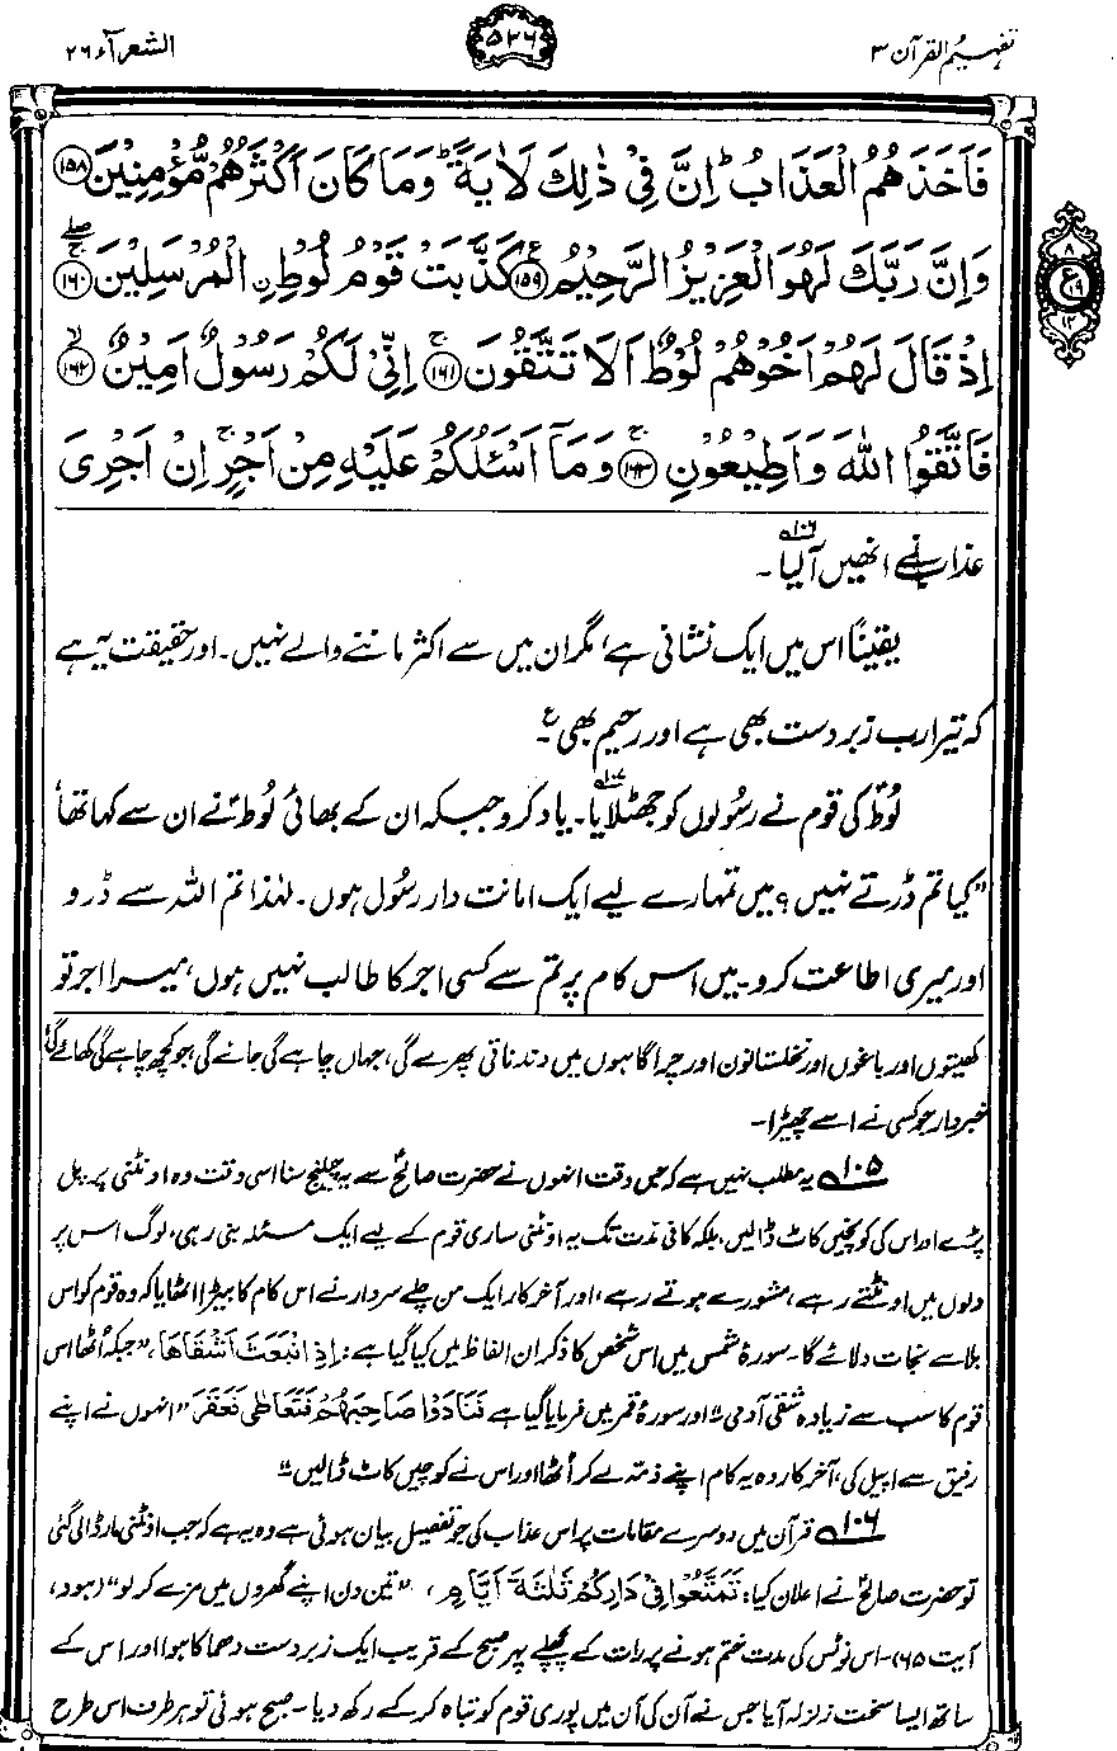 تفہیم القرآن ۳
۵۲۶
الشعرآء ۲۶
فَاَخَذَهُمُ الْعَذَابُ ؕ اِنَّ فِیْ ذٰلِكَ لَاٰیَةً ؕ وَمَا كَانَ اَكْثَرُهُمْ مُّؤْمِنِیْنَ ﴿۱۵۸﴾
وَاِنَّ رَبَّكَ لَهُوَ الْعَزِیْزُ الرَّحِیْمُ ﴿۱۵۹﴾ كَذَّبَتْ قَوْمُ لُوْطِ ِ۟الْمُرْسَلِیْنَ ﴿۱۶۰﴾
اِذْ قَالَ لَهُمْ اَخُوْهُمْ لُوْطٌ اَلَا تَتَّقُوْنَ ﴿۱۶۱﴾ اِنِّیْ لَكُمْ رَسُوْلٌ اَمِیْنٌ ﴿۱۶۲﴾
فَاتَّقُوا اللّٰهَ وَاَطِیْعُوْنِ ﴿۱۶۳﴾ وَمَاۤ اَسْـَٔلُكُمْ عَلَیْهِ مِنْ اَجْرٍ ۚ اِنْ اَجْرِیَ
۸
ع
۱۹
۱۲
عذاب نے انھیں آلیا۱۰۶۔
یقیناً اس میں ایک نشانی ہے، مگر ان میں سے اکثر ماننے والے نہیں۔ اور حقیقت یہ ہے
کہ تیرا رب زبردست بھی ہے اور رحیم بھی۔ ع
لُوطؑ کی قوم نے رسُولوں کو جھٹلایا۱۰۷۔ یاد کرو جبکہ ان کے بھائی لُوطؑ نے ان سے کہا تھا،
”کیا تم ڈرتے نہیں؟ میں تمہارے لیے ایک امانت دار رسُول ہوں۔ لہٰذا تم اللہ سے ڈرو
اور میری اطاعت کرو۔ میں اس کام پر تم سے کسی اجر کا طالب نہیں ہوں، میرا اجر تو
کھیتوں اور باغوں اور نخلستانوں اور چراگاہوں میں دندناتی پھرے گی، جہاں چاہے گی جائے گی، جو کچھ چاہے گی کھائے گی،
خبردار جو کسی نے اسے چھیڑا۔
۱۰۵ یہ مطلب نہیں ہے کہ جس وقت انہوں نے حضرت صالحؑ سے یہ چیلنج سنا اسی وقت وہ اونٹنی پر پل
پڑے اور اس کی کونچیں کاٹ ڈالیں، بلکہ کافی مدّت تک یہ اونٹنی ساری قوم کے لیے ایک مسئلہ بنی رہی، لوگ اس پر
دلوں میں اونٹتے رہے، مشورے ہوتے رہے، اور آخر کار ایک من چلے سردار نے اس کام کا بیڑا اٹھایا کہ وہ قوم کو اس
بلا سے نجات دلائے گا۔ سورۂ شمس میں اس شخص کا ذکر ان الفاظ میں کیا گیا ہے: اِذِ انْۢبَعَثَ اَشْقَاهَا، ”جبکہ اُٹھا اس
قوم کا سب سے زیادہ شقی آدمی“ اور سورۂ قمر میں فرمایا گیا ہے فَنَادَوْا صَاحِبَهُمْ فَتَعَاطٰی فَعَقَرَ ”انہوں نے اپنے
رفیق سے اپیل کی، آخر کار وہ یہ کام اپنے ذمّہ لے کر اُٹھا اور اس نے کوچیں کاٹ ڈالیں“
۱۰۶ قرآن میں دوسرے مقامات پر اس عذاب کی جو تفصیل بیان ہوئی ہے وہ یہ ہے کہ جب اونٹنی مار ڈالی گئی
تو حضرت صالحؑ نے اعلان کیا: تَمَتَّعُوْا فِیْ دَارِكُمْ ثَلٰثَةَ اَیَّامٍ، ”تین دن اپنے گھروں میں مزے کر لو“ (ہود،
آیت ۶۵)۔ اس نوٹس کی مدت ختم ہونے پر رات کے پچھلے پہر صبح کے قریب ایک زبردست دھماکا ہوا اور اس کے
ساتھ ایسا سخت زلزلہ آیا جس نے آن کی آن میں پوری قوم کو تباہ کر کے رکھ دیا۔ صبح ہوئی تو ہر طرف اس طرح